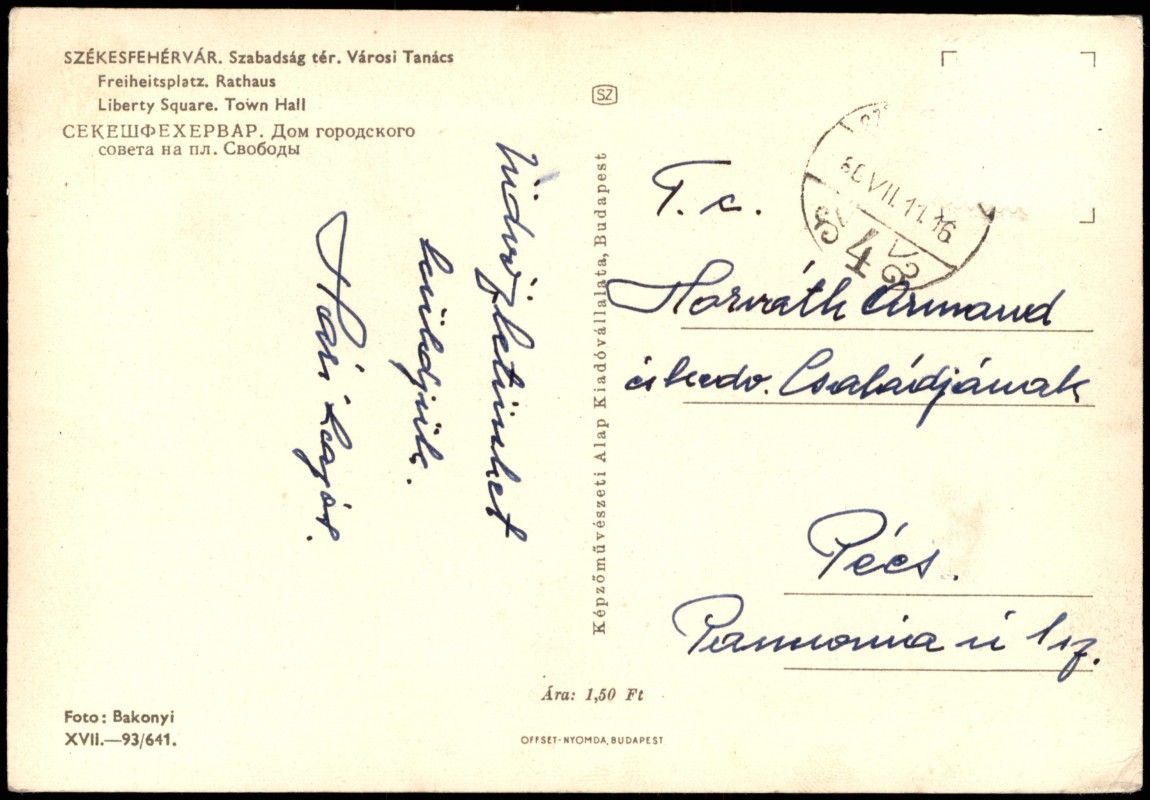 SZÉKESFEHÉRVÁR. Szabadság tér. Városi Tanács
Freiheitsplatz. Rathaus
Liberty Square. Town Hall
СЕКЕШФЕХЕРВАР. Дом городского
совета на пл. Свободы
Üdvözletünket
küldjük.
Lajos.
SZ
Képzőművészeti Alap Kiadóvállalata, Budapest
60 VII. 11. 16
T. c.
Horváth Armand
és kedv. Családjának
Pécs.
Pannonia ú 1 sz.
Ára: 1,50 Ft
Foto: Bakonyi
XVII.—93/641.
OFFSET-NYOMDA, BUDAPEST